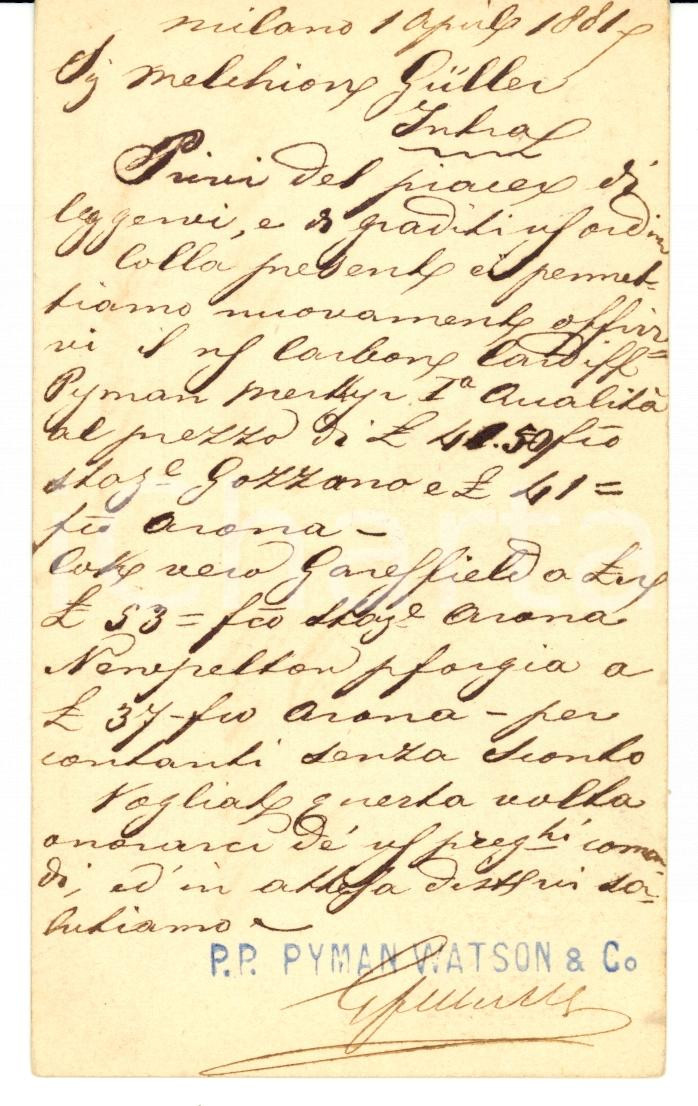 Milano 1 Aprile 1881
Sig Melchiore Güller
Intra
Privi del piacere di
leggervi, e di graditi vs ordini
Colla presente ci permet-
tiamo nuovamente offrir=
vi il ns Carbone Cardiff
Pyman Merthyr Iª Qualità
al prezzo di £ 41.50 fco
staze Gozzano e £ 41=
fco Arona -
Coke vero Gareffield a
£ 53= fco staze Arona
Newpelton pforgia a
£ 37- fco Arona - per
contanti senza sconto
Vogliate questa volta
onorarci de' vs preghi coman
di, ed in attesa distti vi sa-
lutiamo
P.P. PYMAN WATSON & Co